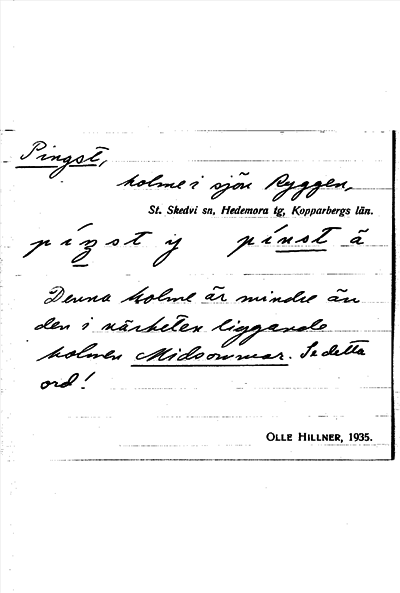 Pingst,
holme i sjön Ryggen,
St. Skedvi sn, Hedemora tg, Kopparbergs län.
pínst ä
Denna holme är mindre än
den i närheten liggande
holmen Midsommar. Se detta
ord!
OLLE HILLNER, 1935.